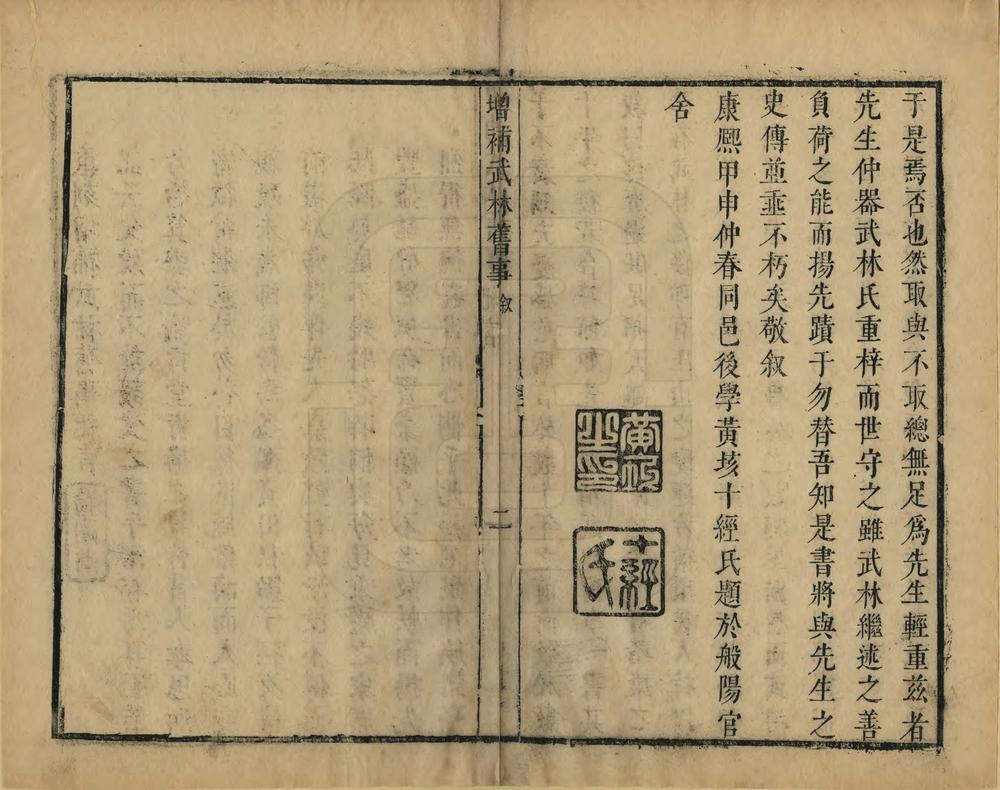 于是焉否也然取與不取總無足爲先生輕重茲者
先生仲器武林氏重梓而世守之雖武林繼述之善
負荷之能而揚先蹟于勿替吾知是書將與先生之
史傳並垂不朽矣敬叙
康熙甲申仲春同邑後學黃垓十經氏題於般陽官
舍
黃垓之印
十經氏
增補武林舊事 叙 二